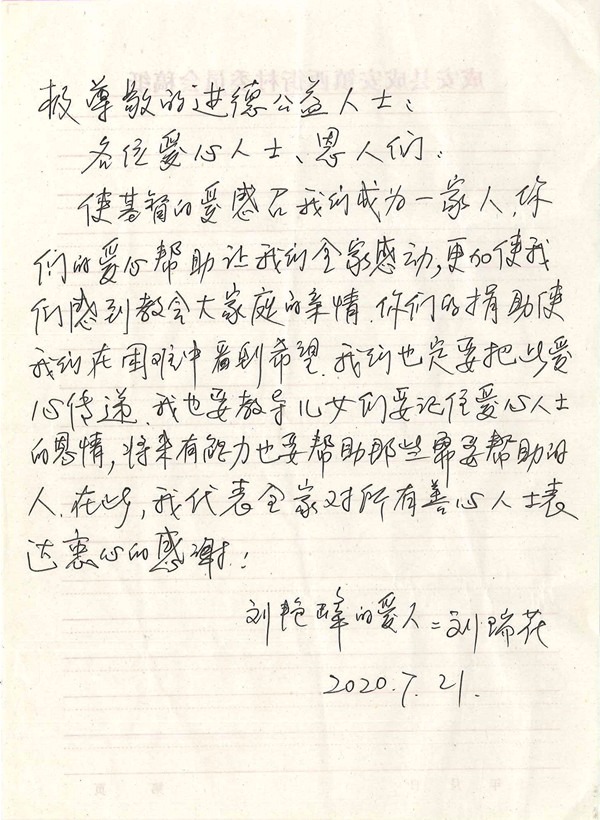 极尊敬的进德公益人士:
各位爱心人士、恩人们:
使基督的爱感召我们成为一家人.你
们的爱心帮助让我们全家感动,更加使我
们感到教会大家庭的亲情.你们的捐助使
我们在困难中看到希望.我们也定要把此爱
心传递.我也要教导儿女们要记住爱心人士
的恩情,将来有能力也要帮助那些需要帮助的
人.在此,我代表全家对所有善心人士表
达衷心的感谢!
刘艳峰的爱人:刘瑞花
2020.7.21.